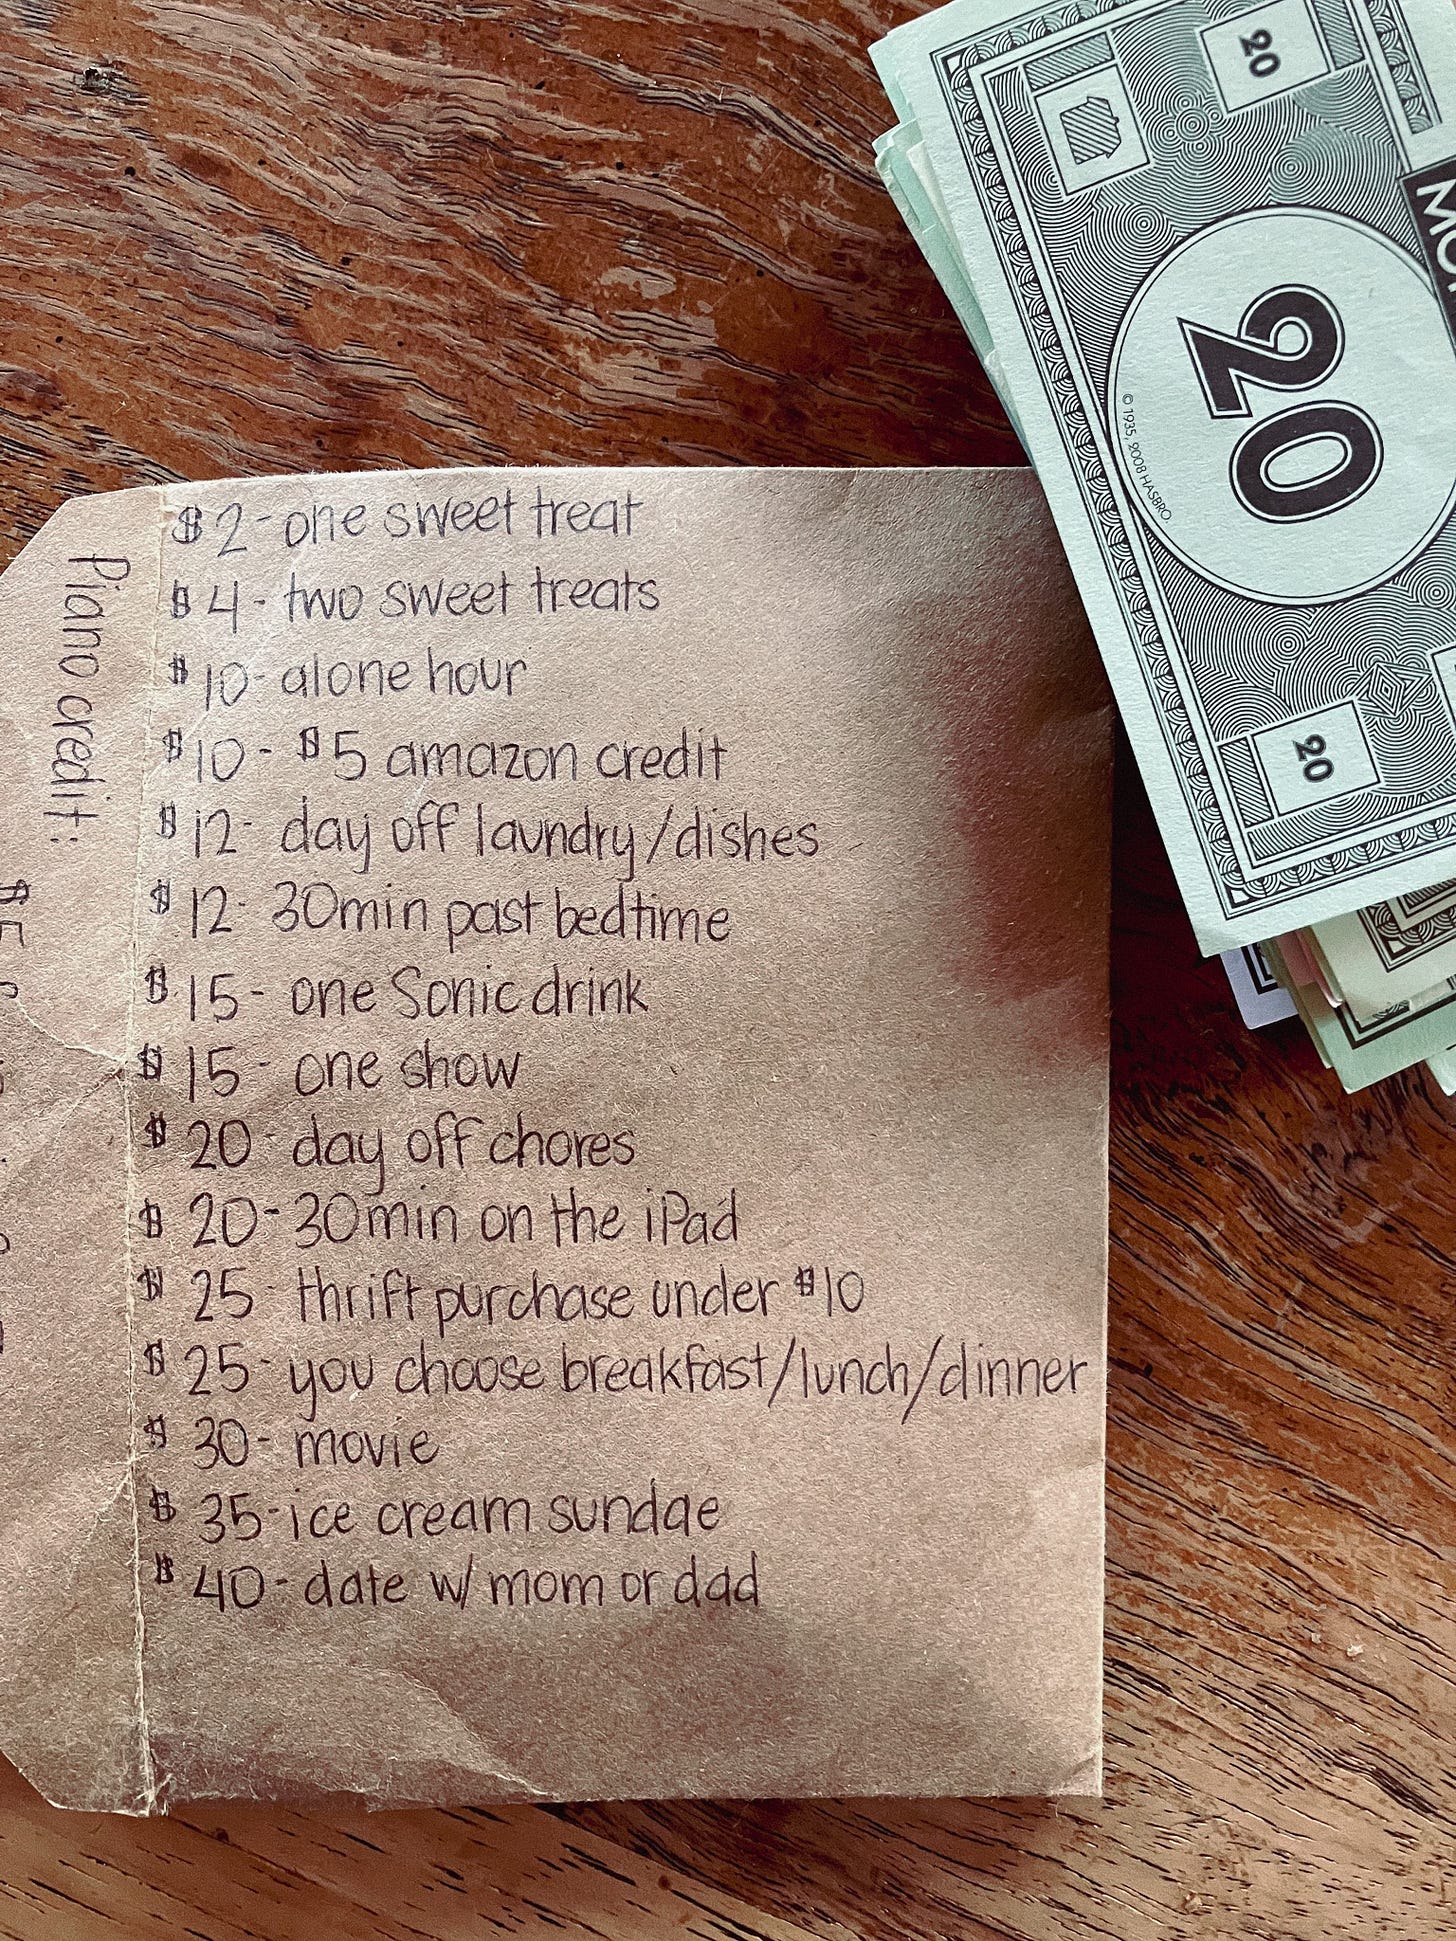 $2-one sweet treat
$4- two sweet treats
$10- alone hour
$10- $5 amazon credit
$12- day off laundry/dishes
$12- 30min past bedtime
$15- one Sonic drink
$15- one show
$20- day off chores
$20- 30min on the iPad
$25- thrift purchase under $10
$25- you choose breakfast/lunch/dinner
$30- movie
$35-ice cream sundae
$40-date w/ mom or dad
Piano credit:
$5
20
20
20
© 1935, 2008 HASBRO.